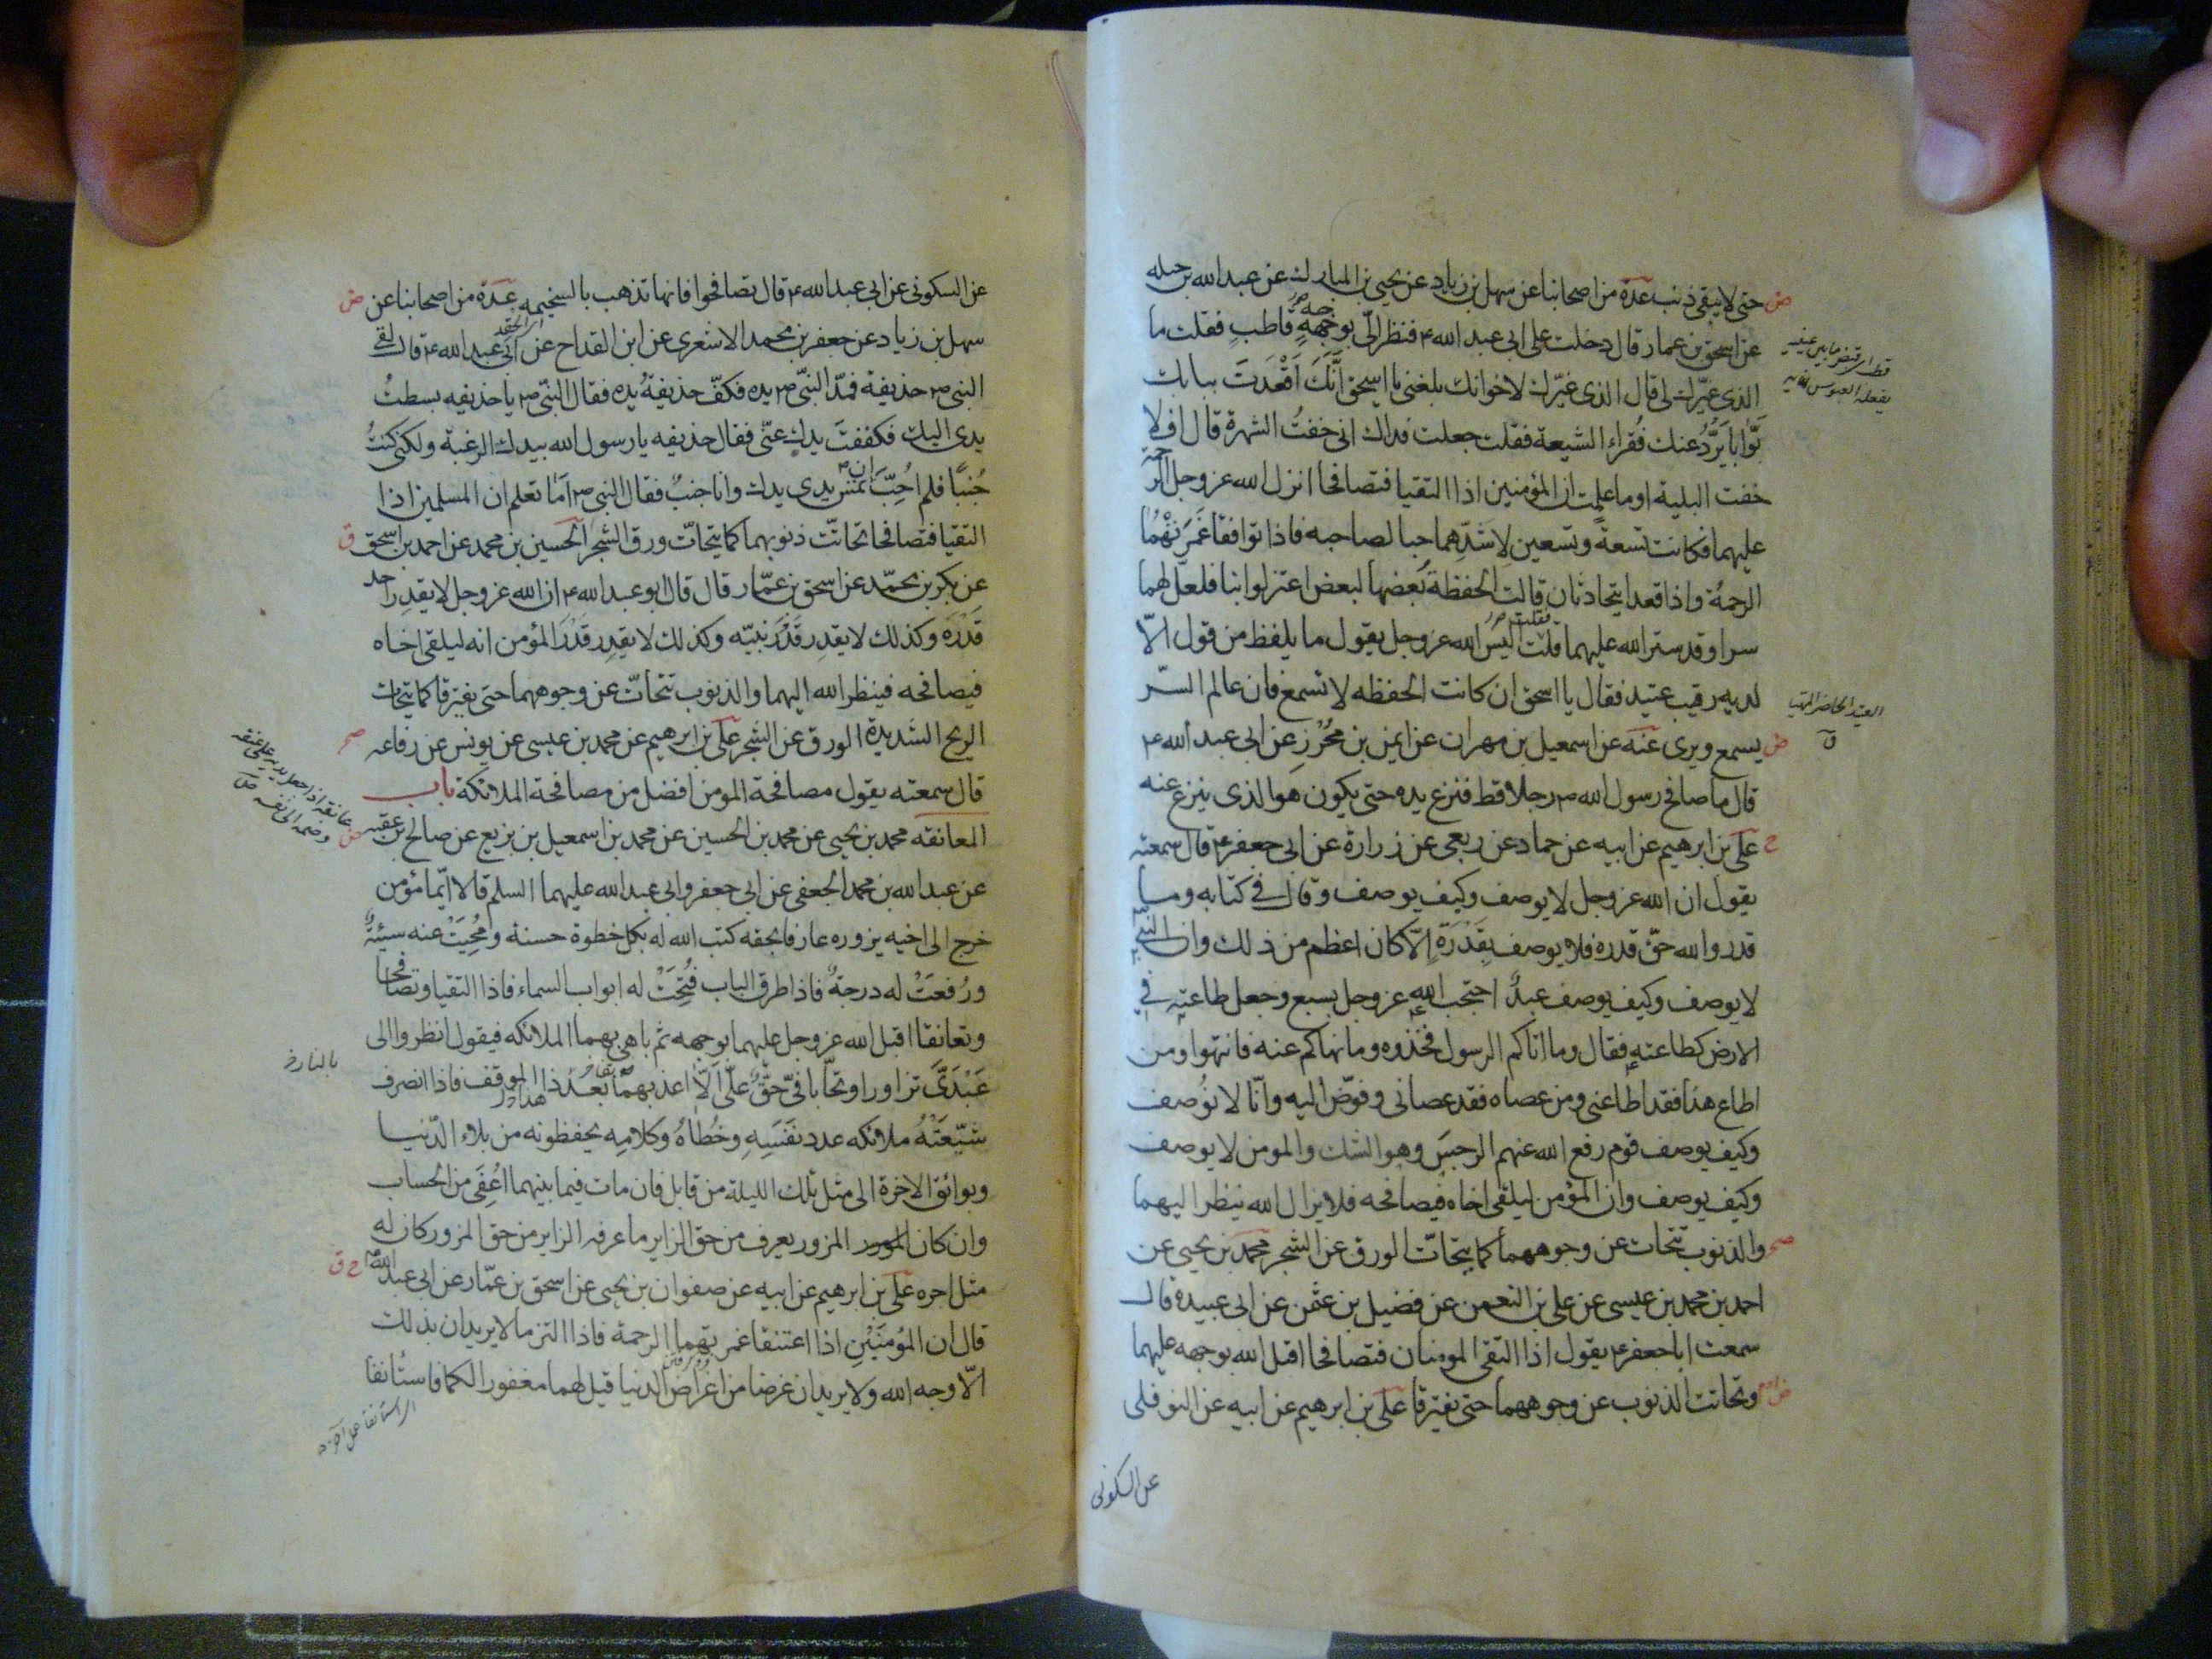 حتى لا يبقى ذنب عدة من اصحابنا عن سهل بن زياد عن يحيى بن المبارك عن عبد الله بن جبله
عن اسحق بن عمار قال دخلت على ابى عبد الله ع فنظر الىّ بوجهٍ قاطبٍ فقلت ما
الذى غيّرك لى قال الذى غيّرك لاخوانك بلغنى يا اسحق انَّكَ اَقْعَدتَ ببابك
بوّابا يَرُدُّ عنك فُقراء الشيعة فقلت جعلت فداك انى خفتُ الشهرة قال افلا
خفت البلية اوما علمت ان المؤمنين اذا التقيا فتصافحا انزل الله عز وجل الرحمة
عليهما فكانت تسعةً وتسعين لاشدّهما حبا لصاحبه فاذا توافقا غَمَرَتْهُمَا
الرحمةُ واذا قعدا يتحادثان قالت الحفظةُ بعضها لبعض اعتزلوا بنا فلعلّ لهما
سرا وقد ستر الله عليهما قلت اليس الله عز وجل يقول ما يلفظ من قول الّا
لديه رقيب عتيد فقال يا اسحق ان كانت الحفظه لا تسمع فان عالم السّر
يسمع ويرى عنه عن اسمعيل بن مهران عن ايمن بن مُحْرِزٍ عن ابى عبد الله ع
قال ما صافح رسول الله ص رجلا قط فنزع يده حتى يكون هو الذى ينزع عنه
على بن ابرهيم عن ابيه عن حماد عن ربعى عن زرارة عن ابى جعفر ع قال سمعته
يقول ان الله عز وجل لا يوصف وكيف يوصف وقال فى كتابه وما
قدروا الله حقّ قدره فلا يوصف بِقَدْرَةٍ الّا كان اعظم من ذلك وان النبىّ
لا يوصف وكيف يوصف عبدٌ احتجب الله عز وجل بسبع وجعل طاعته فى
الارض كطاعته فقال وما اتاكم الرسول فخذوه وما نهاكم عنه فانتهوا ومن
اطاع هذا فقد اطاعنى ومن عصاه فقد عصانى وفوّض اليه وانّا لا نُوصف
وكيف يوصف قوم رفع الله عنهم الرجسَ وهو الشك والمومن لا يوصف
وكيف يوصف وان المؤمن ليلقى اخاه فيصافحه فلا يزال الله ينظر اليهما
والذنوب تتحات عن وجوههما كما يتحاتّ الورق عن الشجر محمد بن يحيى عن
احمد بن محمد بن عيسى عن على بن النعمن عن فضيل بن عثمن عن ابى عبيدة قال
سمعت ابا جعفر ع يقول اذا التقى المومنان فتصافحا اقبل الله بوجهه عليهما
وتحاتت الذنوب عن وجوههما حتى يفترقا على بن ابرهيم عن ابيه عن النوفلى
عن السكونى
عن السكونى عن ابى عبد الله ع قال تصافحوا فانها تذهب بالسخيمه عدة من اصحابنا عن
سهل بن زياد عن جعفر بن محمد الاشعرى عن ابن القداح عن ابى عبد الله ع قال لقى
النبى ص حذيفة فمدّ النبىّ ص يده فكفّ حذيفةُ يده فقال النبىّ ص يا حذيفه بسطتُ
يدى اليك فكففتَ يدك عنّى فقال حذيفه يا رسول الله بيدك الرغبة ولكنى كنتُ
جُنبًا فلم اُحِبَّ ان تمسّ يدى يدك وانا جنبٌ فقال النبى ص اَمَا تعلم ان المسلمين اذا
التقيا فتصافحا تحاتّت ذنوبهما كما يتحاتّ ورق الشجر الحسين بن محمد عن احمد بن اسحق
عن بكر بن محمّد عن اسحق بن عمّار قال قال ابو عبد الله ع ان الله عز وجل لا يقدِر احد
قَدْرَه وكذلك لا يقدِر قَدْرَ نبيّه وكذلك لا يقدِر قَدْرَ المؤمن انه ليلقى اخاه
فيصافحه فينظر الله اليهما والذنوب تتحاتّ عن وجوههما حتى يفترقا كما يتحات
الريح الشديدة الورق عن الشجر على بن ابرهيم عن محمد بن عيسى عن يونس عن رفاعه
قال سمعته يقول مصافحة المومن افضل من مصافحة الملائكة باب
المعانقه محمد بن يحيى عن محمد بن الحسين عن محمد بن اسمعيل بن بزيع عن صالح بن عقبه
عن عبد الله بن محمد الجعفى عن ابى جعفر وابى عبد الله عليهما السلم قالا ايّما مؤمن
خرج الى اخيه يزوره عارفا بحقه كتب الله له بكل خطوة حسنة ومُحِيَتْ عنه سيئةٌ
ورُفعَتْ له درجةٌ فاذا طرق الباب فُتِحَتْ له ابواب السماء فاذا التقيا وتصافحا
وتعانقا اقبل الله عز وجل عليهما بوجهه ثم باهى بهما الملائكه فيقول انظروا الى
عَبْدَىَّ تزاورا وتحابّا فىّ حقٌّ علىّ اَلّا اعذبهما بعد ذا الموقف فاذا انصرف
شيّعَتْهُ ملائكه عدد نَفَسَهِ وخُطاهُ وكلامِه يحفظونه من بلاء الدّنيا
وبوائق الاخرة الى مثل تلك الليلة من قابل فان مات فيما بينهما اُعْفِىَ من الحساب
وان كان المزور يعرف من حق الزاير ما عرفه الزاير من حق المزور كان له
مثل اجره على بن ابرهيم عن ابيه عن صفوان بن يحيى عن اسحق بن عمّار عن ابى عبد الله ع
قال ان المُؤمنَيْنِ اذا اعتنقا غمرتهما الرحمة فاذا التزما لا يريدان بذلك
الّا وجه الله ولا يريدان غرضا من اغراض الدنيا قيل لهما مغفور الكما فاستانفا